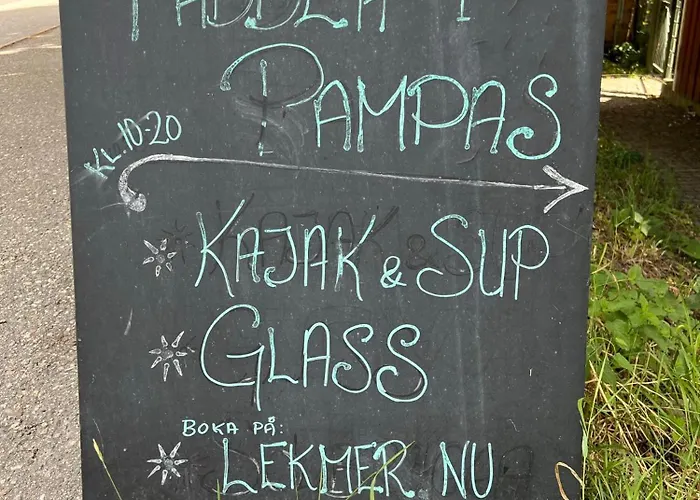 PADDLA I
PAMPAS
KL 10-20
KAJAK & SUP
GLASS
BOKA PÅ:
LEKMER NU